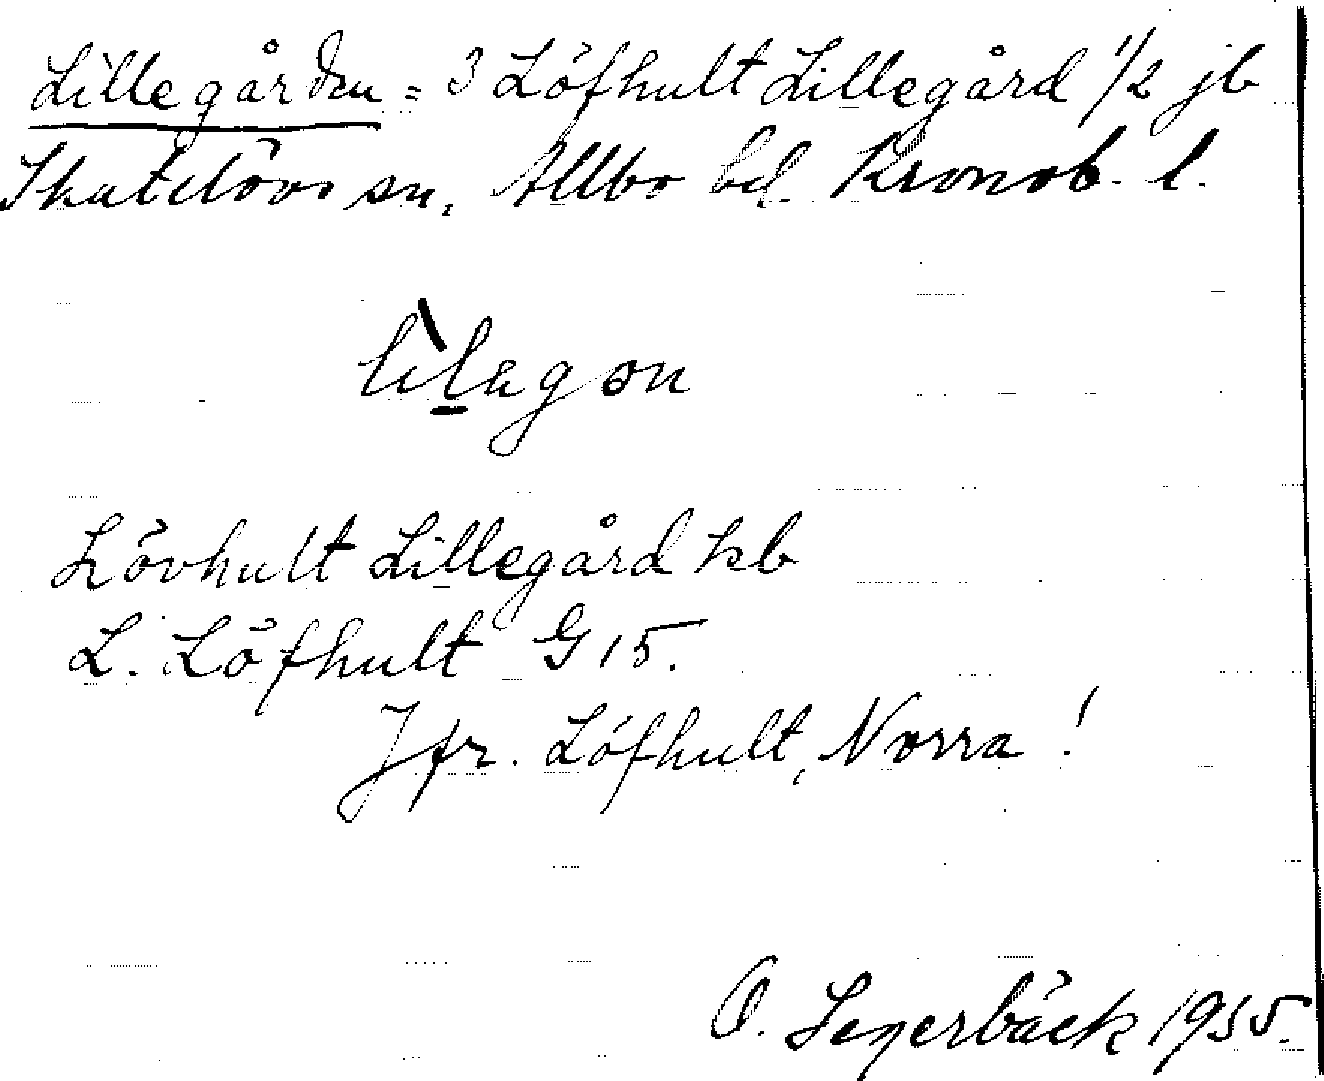 Lillegården = 3 Löfhult Lillegård 1/2 jb
Skatelövs sn, Allbo hd. Kronob. l.
Lövhult Lillegård kb
L. Löfhult G 15.
Jfr. Löfhult, Norra!
O. Segerbäck 1955.